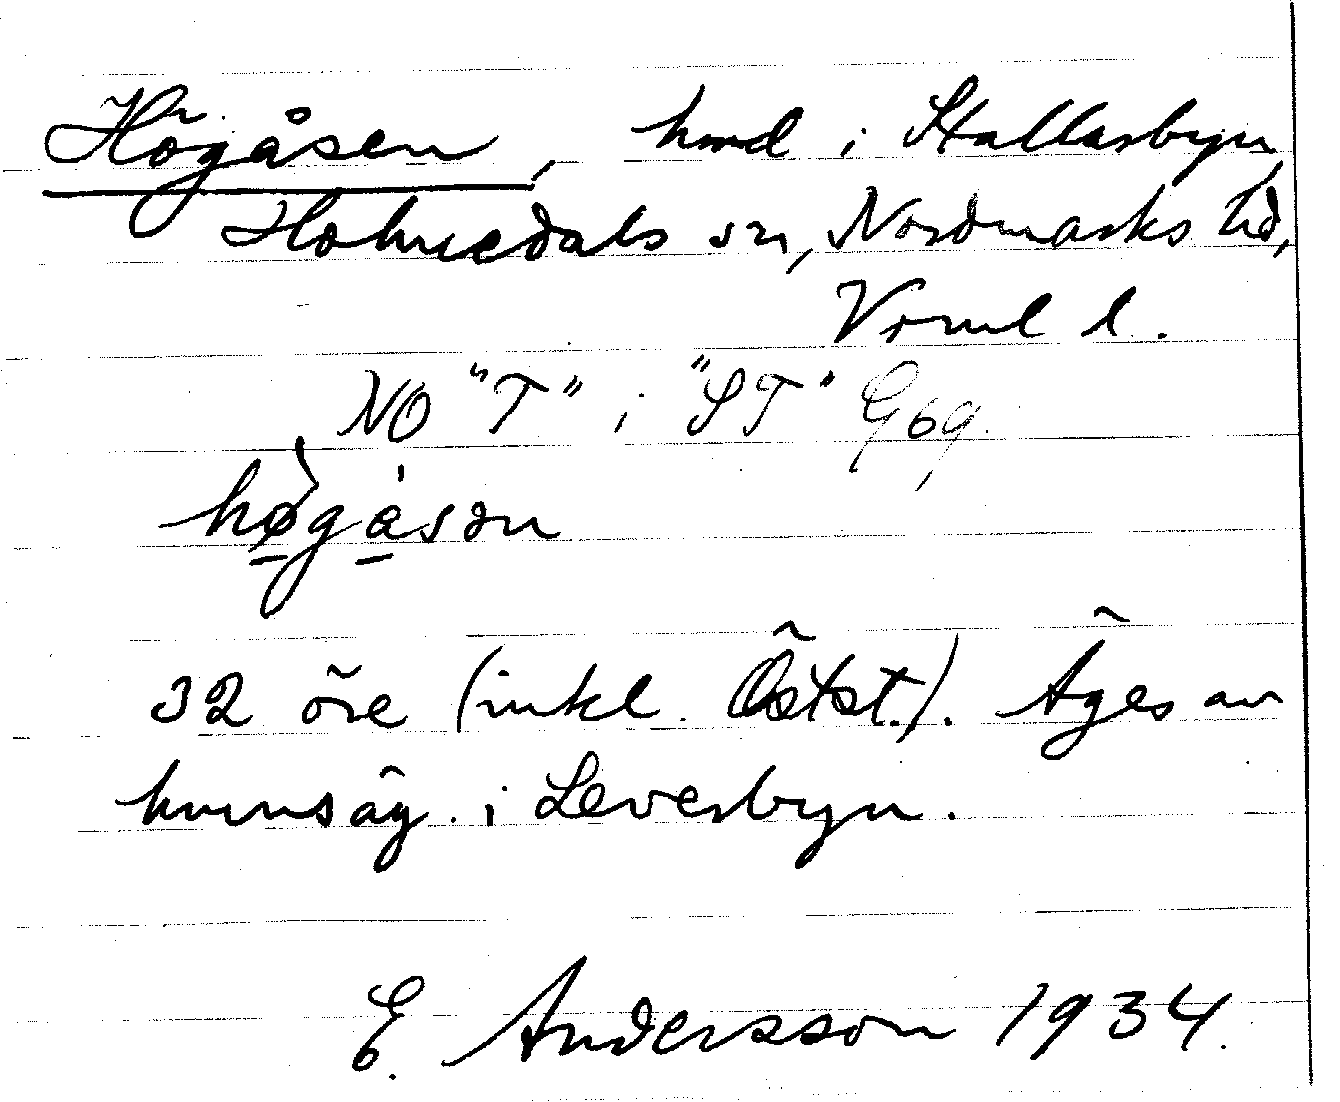 Högåsen, hmd i Stallarbyn,
Holmedals sn, Nordmarks hd,
Vrml l.
NO "T" i "ST" G69.
hø̀gåsən
32 öre (inkl. Östst.). Äges av
hmnsäg. i Leverbyn.
E. Andersson 1934.